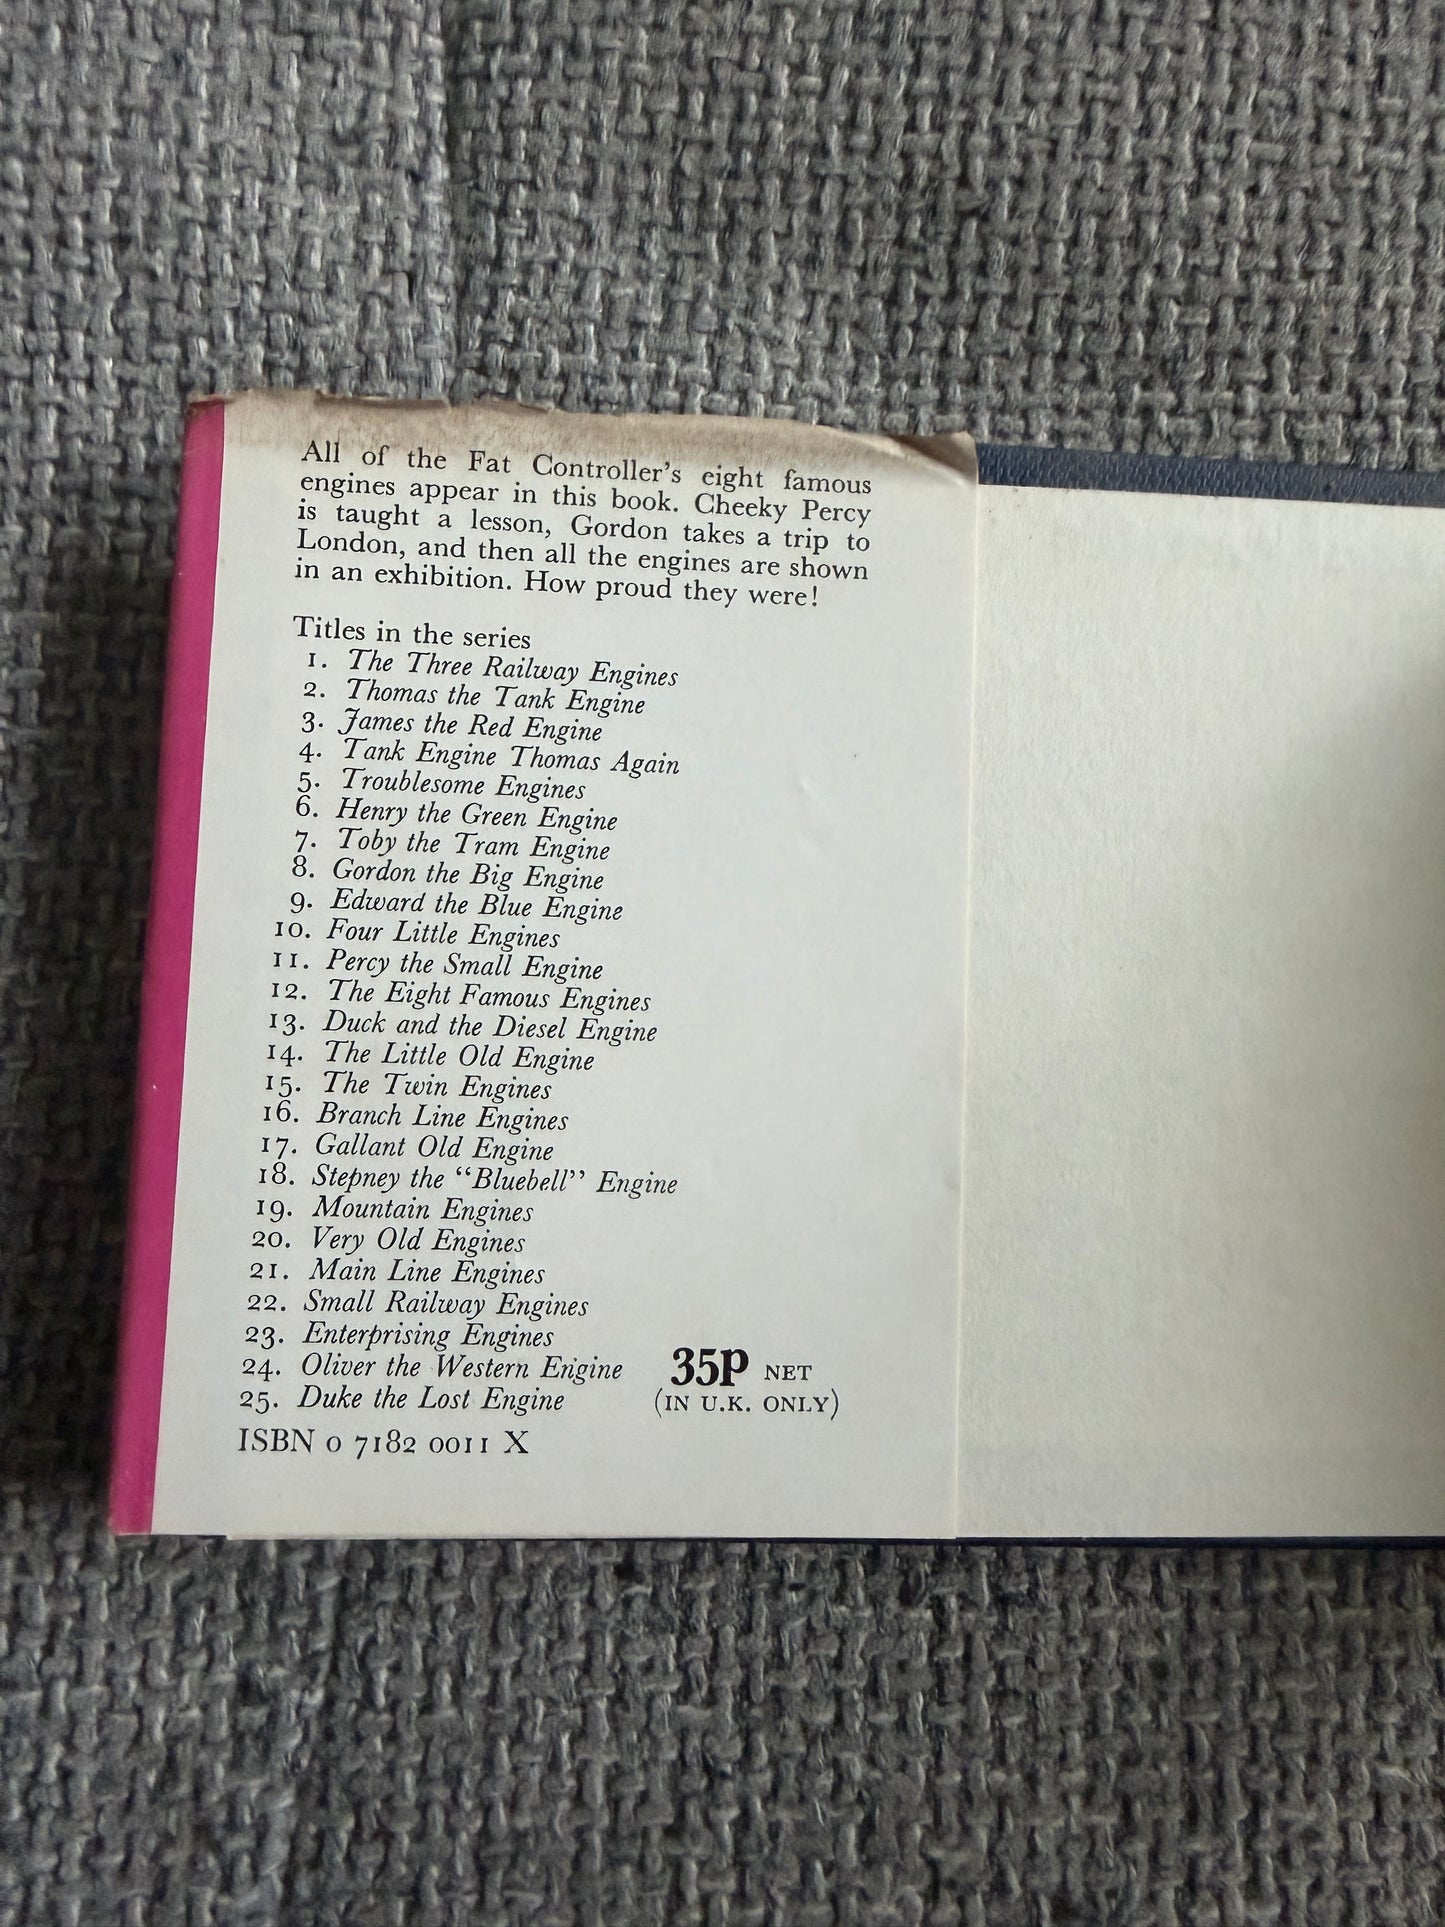 All of the Fat Controller's eight famous
engines appear in this book. Cheeky Percy
is taught a lesson, Gordon takes a trip to
London, and then all the engines are shown
in an exhibition. How proud they were!
Titles in the series
1. The Three Railway Engines
2. Thomas the Tank Engine
3. James the Red Engine
4. Tank Engine Thomas Again
5. Troublesome Engines
6. Henry the Green Engine
7. Toby the Tram Engine
8. Gordon the Big Engine
9. Edward the Blue Engine
10. Four Little Engines
11. Percy the Small Engine
12. The Eight Famous Engines
13. Duck and the Diesel Engine
14. The Little Old Engine
15. The Twin Engines
16. Branch Line Engines
17. Gallant Old Engine
18. Stepney the “Bluebell” Engine
19. Mountain Engines
20. Very Old Engines
21. Main Line Engines
22. Small Railway Engines
23. Enterprising Engines
24. Oliver the Western Engine
25. Duke the Lost Engine
35p NET
(IN U.K. ONLY)
ISBN 0 7182 0011 X